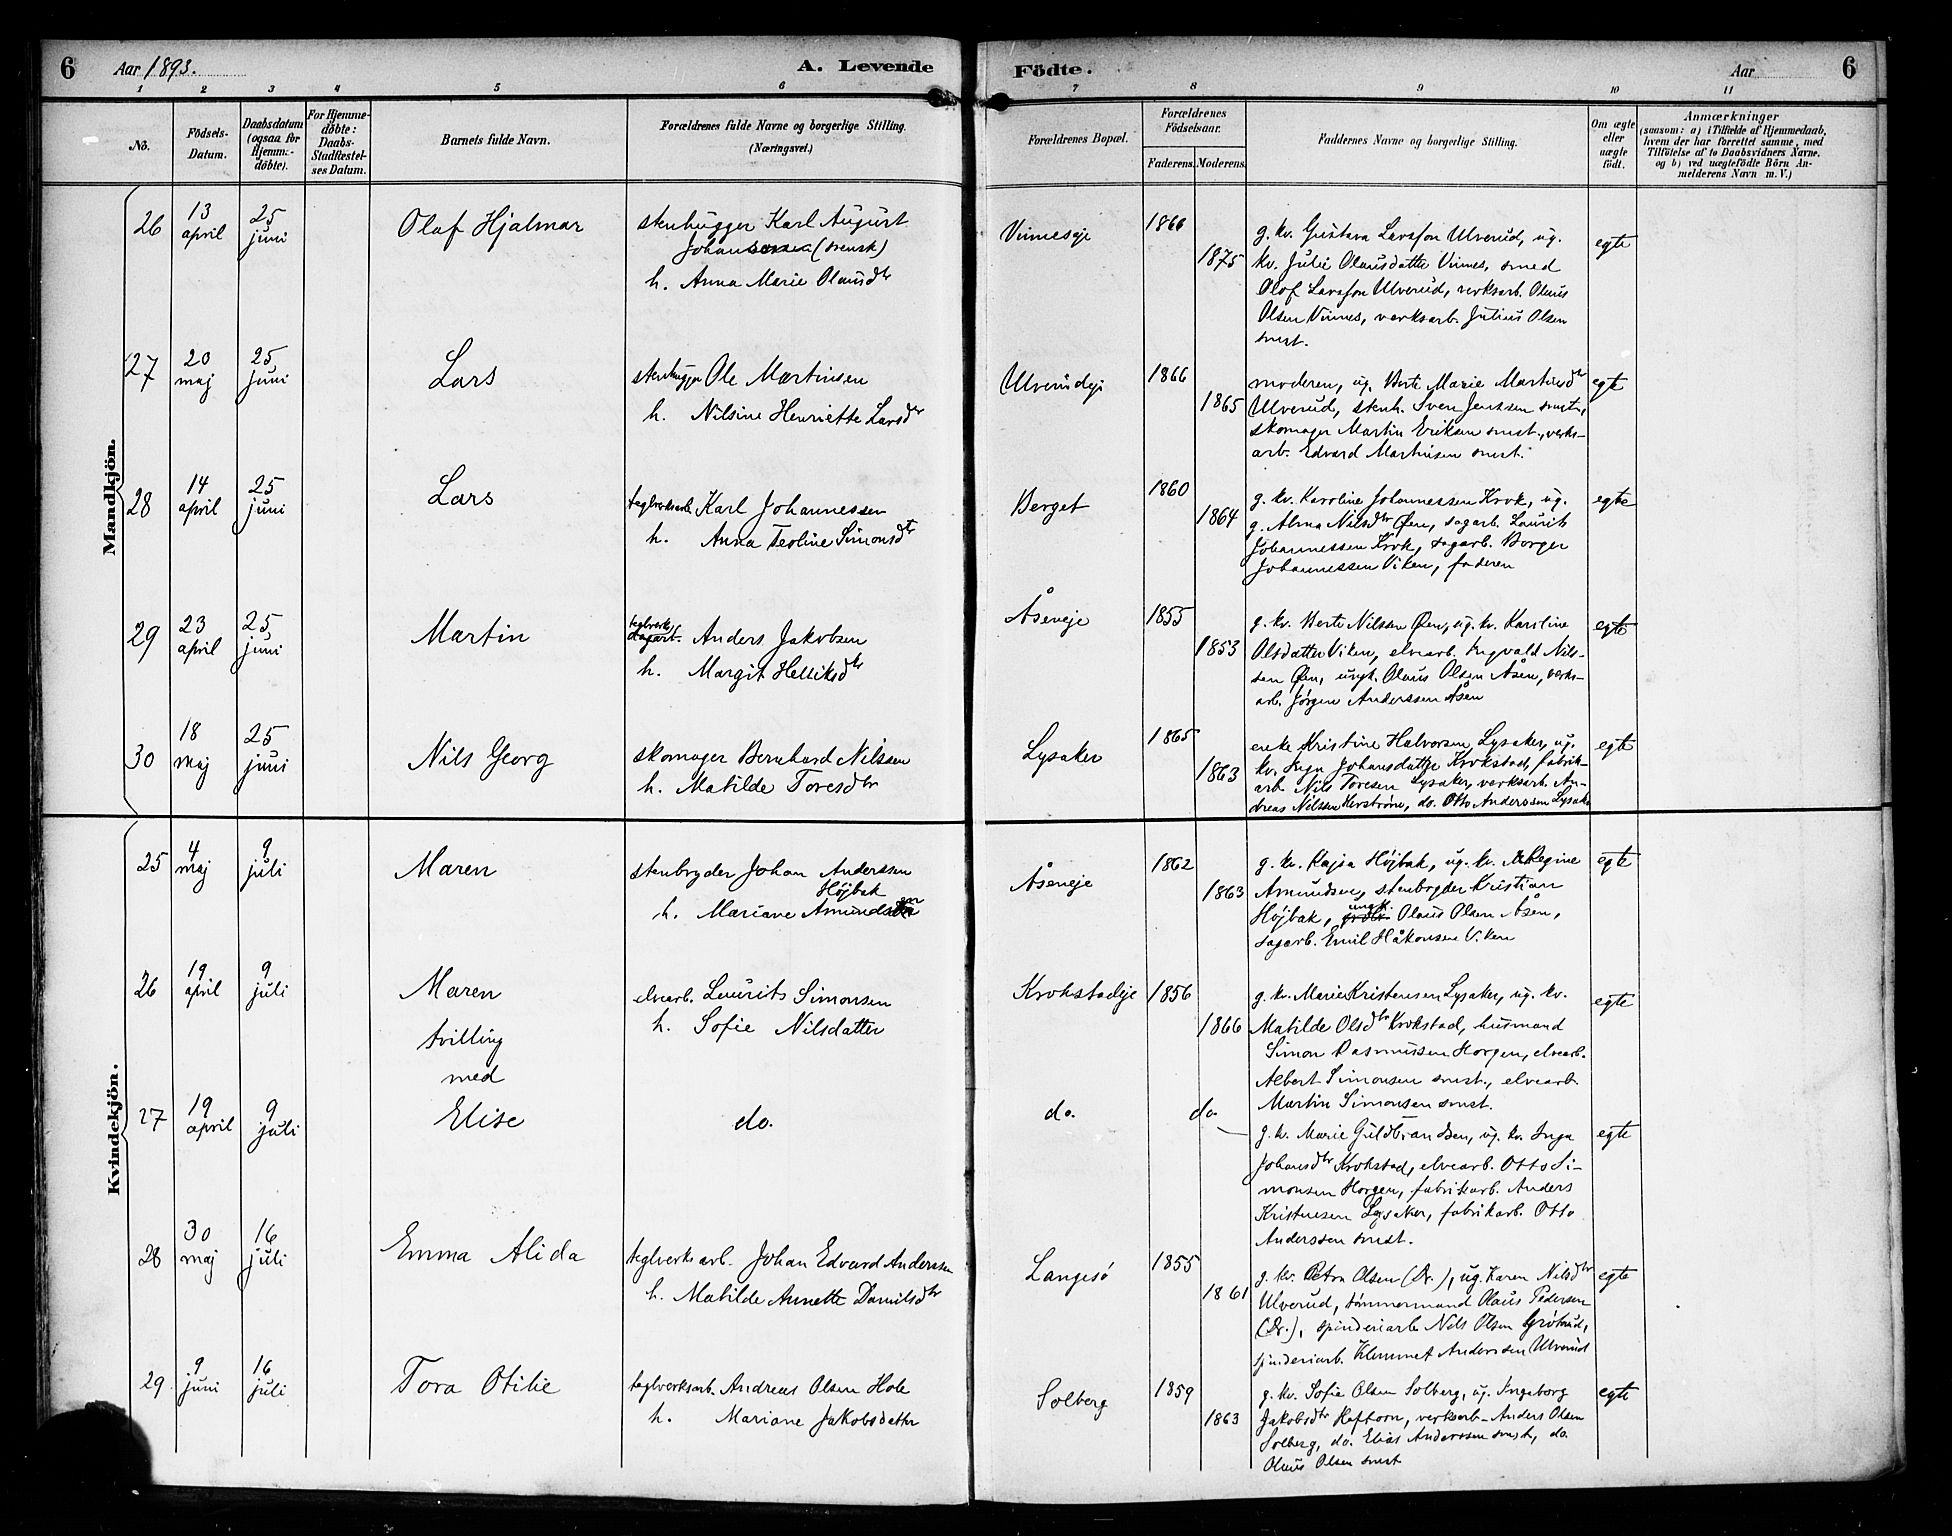 6
Aar 1893.
A. Levende
Födte.
Aar
6
1 2 3 4 5 6 7 8 9 10 11
No.
Födsels-
Datum.
Daabsdatum
(ogsaa for
Hjemme-
döbte).
For Hjemme-
döbte:
Daabs-
Stadfæstel-
ses Datum.
Barnets fulde Navn.
Forældrenes fulde Navne og borgerlige Stilling.
(Næringsvei.)
Forældrenes Bopæl.
Forældrenes
Födselsaar.
Faderens. Moderens.
Faddernes Navne og borgerlige Stilling.
Om ægte
eller
uægte
födt.
Anmærkninger
(saasom: a) i Tilfælde af Hjemmedaab,
hvem der har forrettet samme, med
Tilföielse af to Daabsvidners Navne.
og b) ved uægtefödte Börn An-
melderens Navn m. V.)
Mandkjön.
26
13
april
25
juni
Olaf Hjalmar
stenhugger Karl August
Johansen (svensk)
h. Anna Marie Olausdtr
Vinneseje
1866
1875
g. kv. Gustava Larsson Ulverud, ug.
kv. Julie Olausdatter Vinnes, smed
Olof Larsson Ulverud, verksarb. Olaus
Olsen Vinnes, verksarb. Julius Olsen
smst.
egte
27
20
maj
25
juni
Lars
stenhugger Ole Martinsen
h. Nilsine Henriette Larsdtr
Ulverudeje
1866
1865
moderen, ug. Berte Marie Martinsdtr
Ulverud, stenh. Sven Jenssen smst.,
skomager Martin Eriksen smst., verks-
arb. Edvard Martinsen smst.
egte
28
14
april
25
juni
Lars
teglverksarb. Karl Johannessen
h. Anna Teoline Simonsdtr
Berget
1860
1864
g. kv. Karoline Johannessen Krok, ug.
g. Alma Nilsdtr Øen, sagarb. Laurits
Johannessen Krok, sagarb. Borger
Johannessen Viken, faderen
egte
29
23
april
25
juni
Martin
teglverks
sagarb. Anders Jakobsen
h. Margit Helliksdtr
Åseneje
1855
1853
g. kv. Berte Nilssen Øen, ug. kv. Karoline
Olsdatter Viken, elvearb. Ingvald Nils-
sen Øen, ungk. Olaus Olsen Åsen, verks-
arb. Jørgen Anderssen Åsen
egte
30
18
maj
25
juni
Nils Georg
skomager Bernhard Nilssen
h. Matilde Toresdtr
Lysaker
1865
1863
enke Kristine Halvorsen Lysaker, ug.
kv. Inga Johansdatter Krokstad, fabrik-
arb. Nils Toresen Lysaker, verksarb. An-
dreas Nilssen Herstrøm, do. Otto Anderssen Lysaker
egte
Kvindekjön.
25
4
maj
9
juli
Maren
stenbryder Johan Anderssen
Højbak
h. Mariane Amundsen
Åseneje
1862
1863
g. kv. Kajsa Højbak, ug. kv. Regine
Amundsen, stenbryder Kristian
Højbak, ungk. Olaus Olsen Åsen,
sagarb. Emil Håkonsen Viken
egte
26
19
april
9
juli
Maren
tvilling
med
elvearb. Laurits Simonsen
h. Sofie Nilsdatter
Krokstadeje
1856
1866
g. kv. Marie Kristensen Lysaker, ug. kv.
Matilde Olsdtr Krokstad, husmand
Simon Rasmussen Horgen, elvearb.
Albert Simonsen smst., elvearb.
Martin Simonsen smst.
egte
27
19
april
9
juli
Elise
do.
do.
do
g. kv. Marie Guldbrandsen, ug. kv. Inga
Johansdtr Krokstad, elvearb. Otto Si-
monsen Horgen, fabrikarb. Anders
Kristensen Lysaker, fabrikarb. Otto
Anderssen smst.
egte
28
30
maj
16
juli
Emma Alida
teglverksarb. Johan Edvard Anderssen
h. Matilde Annette Danielsdtr
Langesø
1855
1861
g. kv. Petra Olsen (Dr.), ug. Karen Nilsdtr
Ulverud, tømmermand Olaus Pedersen
(Dr.), spinderiarb. Nils Olsen Grøterud,
spinderiarb. Klemmet Anderssen Ulverud
egte
29.
9
juni
16
juli
Tora Otilie
teglverksarb. Andreas Olsen Hole
h. Mariane Jakobsdatter
Solberg
1859
1863
g. kv. Sofie Olsen Solberg, ug. Ingeborg
Jakobsdtr Haftorn, verksarb. Anders Olsen
Solberg, do. Elias Anderssen smst, do.
Olaus Olsen smst
egte